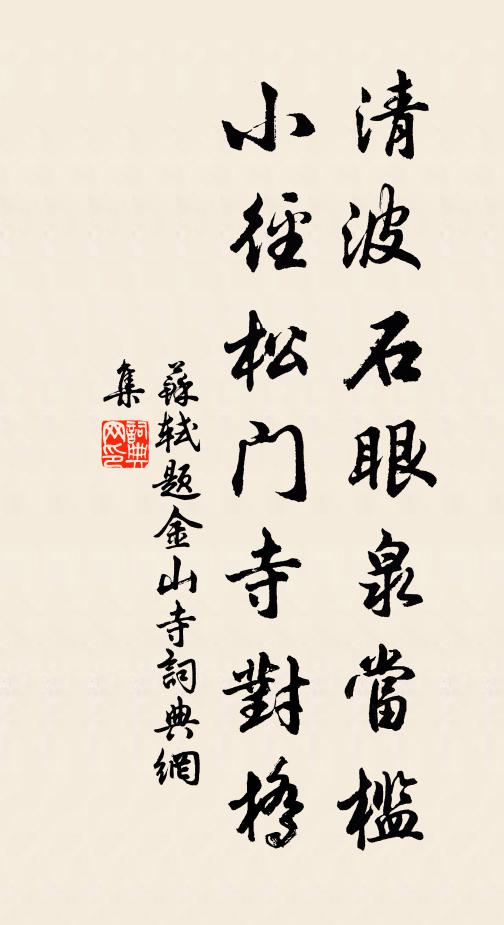 清波石眼泉當檻
小徑松門寺對橋
蘇軾題金山寺詞典網
集
詞典網印